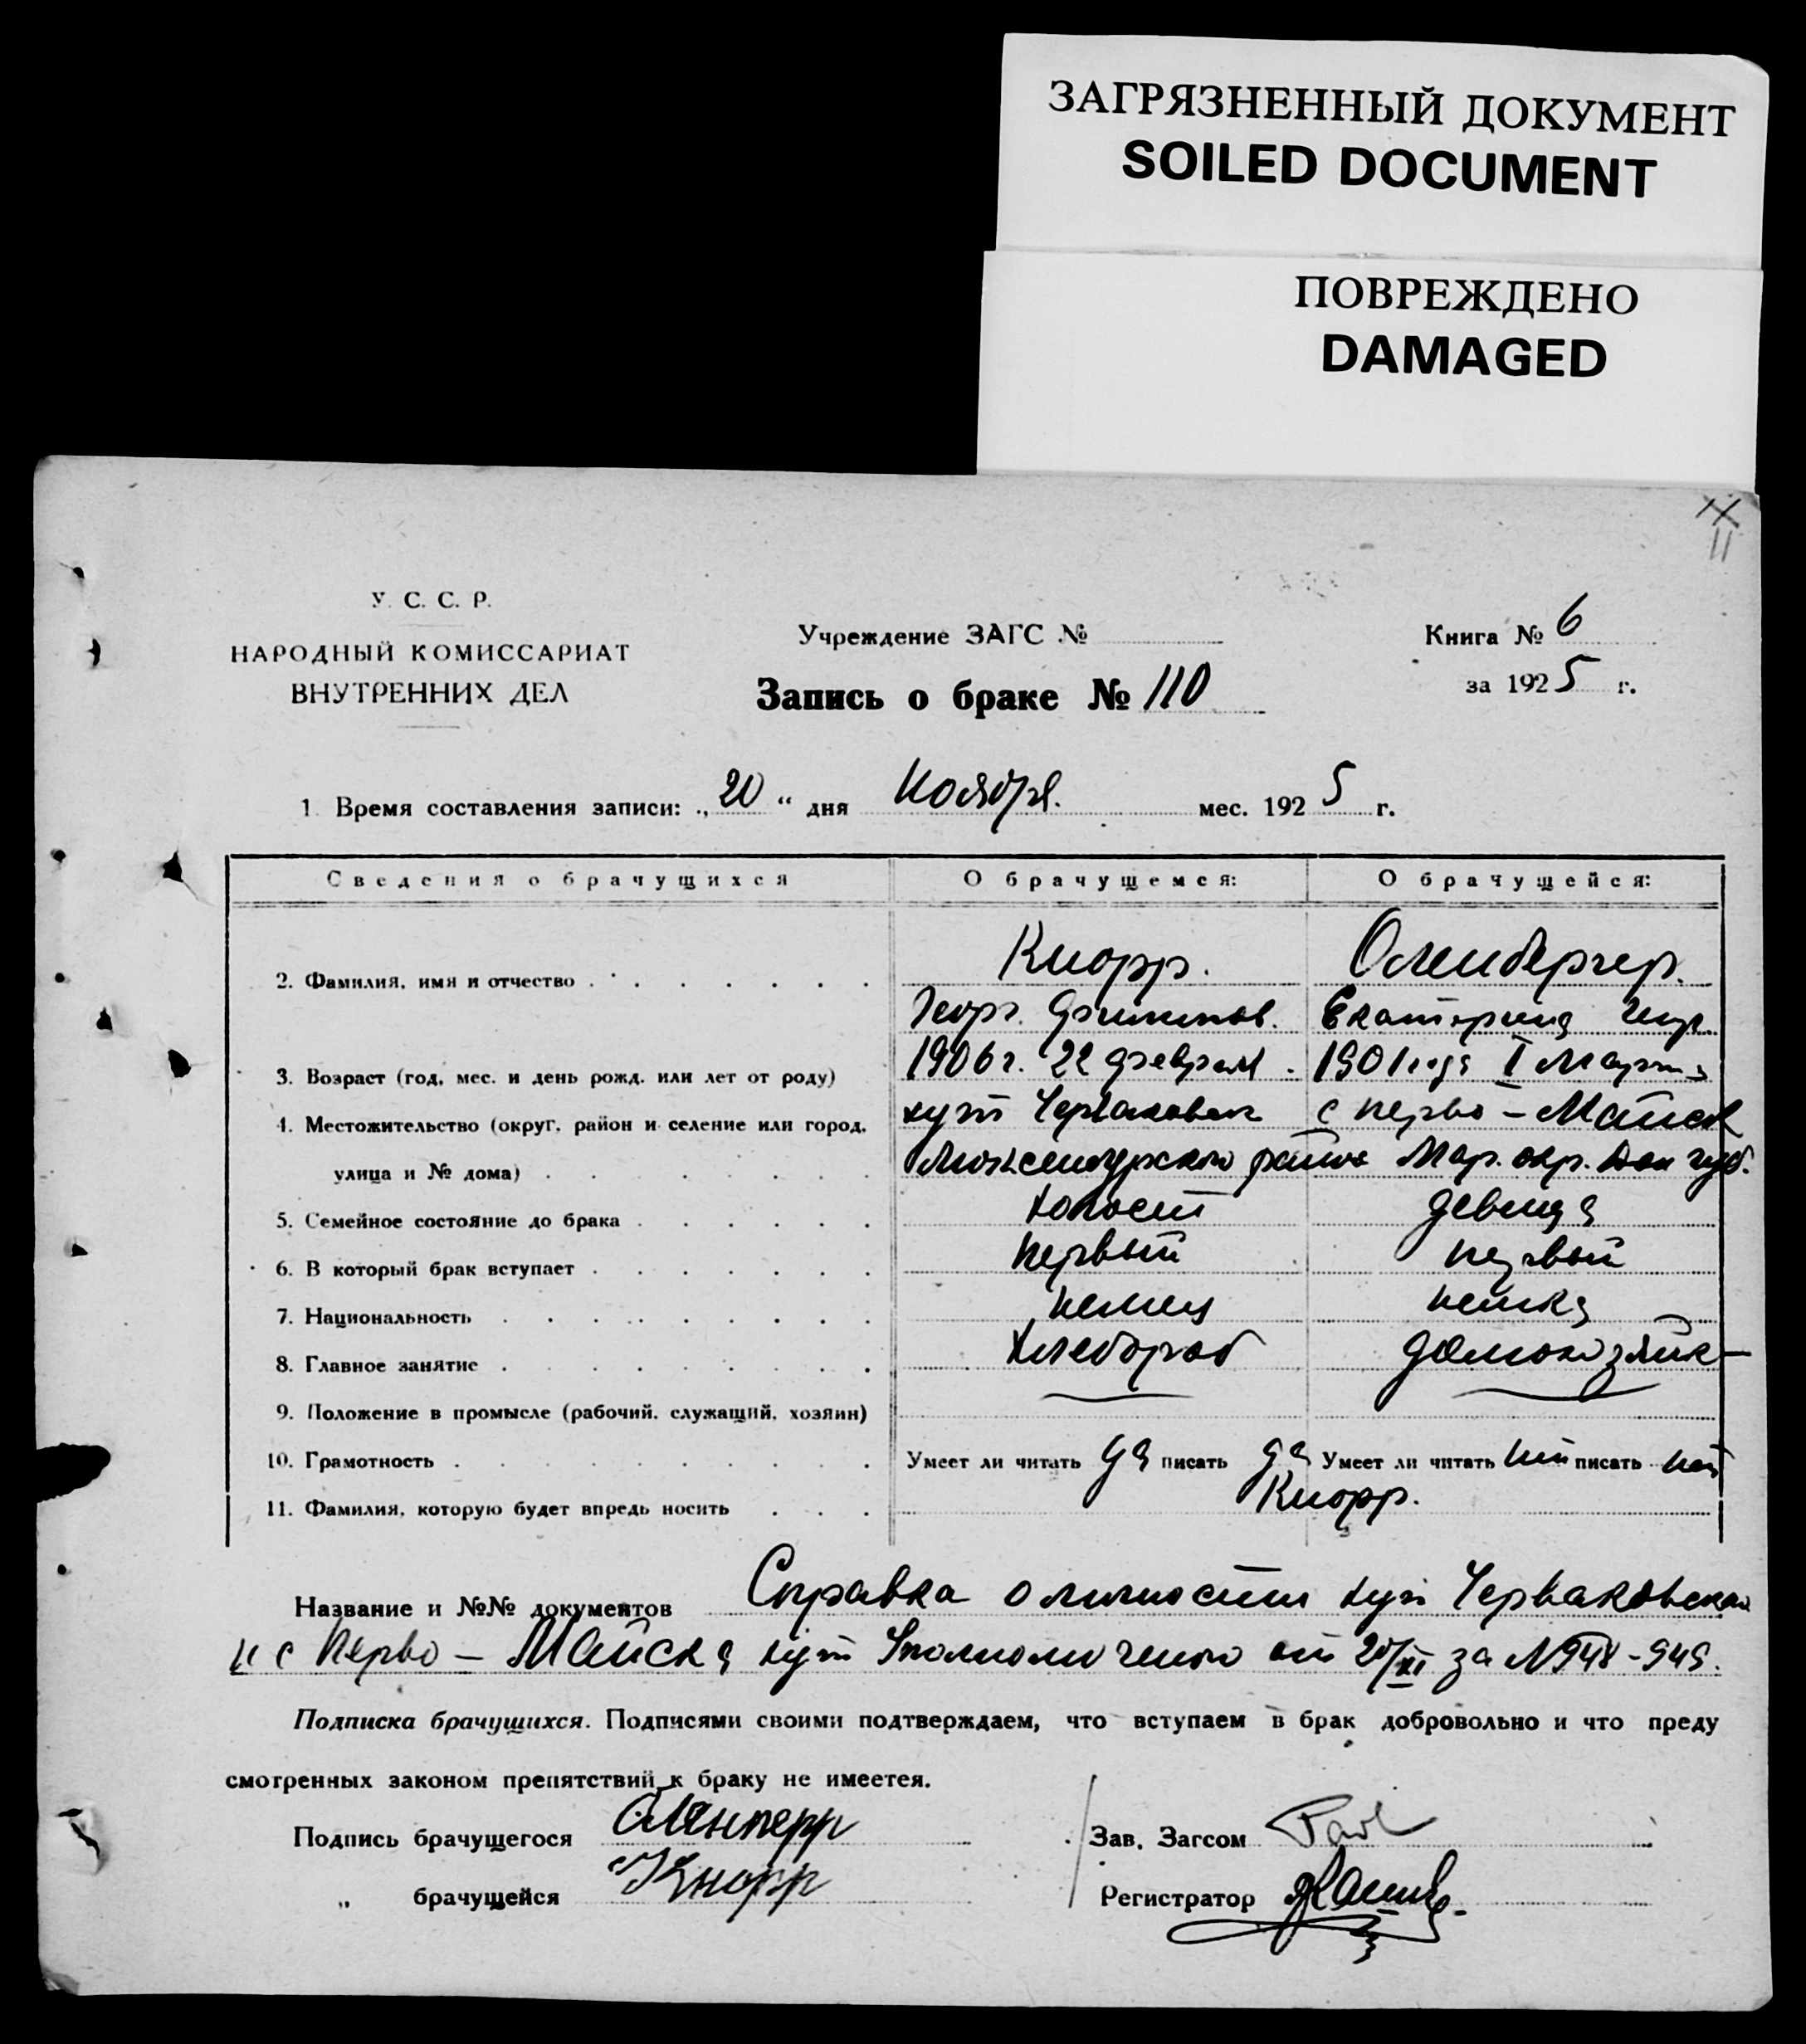 ЗАГРЯЗНЕННЫЙ ДОКУМЕНТ
SOILED DOCUMENT
ПОВРЕЖДЕНО
DAMAGED
11
У. С. С. Р.
НАРОДНЫЙ КОМИССАРИАТ
ВНУТРЕННИХ ДЕЛ
Учреждение ЗАГС №
Запись о браке № 110
Книга № 6
за 1925 г.
1 Время составления записи: „20“ дня Ноября. мес. 1925 г.
Сведения о брачущихся О брачущемся: О брачущейся:
2. Фамилия, имя и отчество Кнорр.
Георг. Екатерина
3. Возраст (год, мес. и день рожд. или лет от роду) 1906 г. 22 февраля. 1901 года I Марта
4. Местожительство (округ, район и селение или город, хут с Перво-Майск
улица и № дома) района Мар. окр. Дон губ.
5. Семейное состояние до брака холост девица
6. В который брак вступает первый первый
7. Национальность немец немка
8. Главное занятие Хлебороб домохозяйк-
9. Положение в промысле (рабочий, служащий, хозяин)
10. Грамотность Умеет ли читать да писать да Умеет ли читать нет писать нет
11. Фамилия, которую будет впредь носить Кнорр.
Название и №№ документов Справка о личности хут
и с Перво-Майска хут от 20/XI за № 948-949.
Подписка брачущихся. Подписями своими подтверждаем, что вступаем в брак добровольно и что преду
смотренных законом препятствий к браку не имеетея.
Подпись брачущегося
„ брачущейся Кнорр
Зав. Загсом
Регистратор